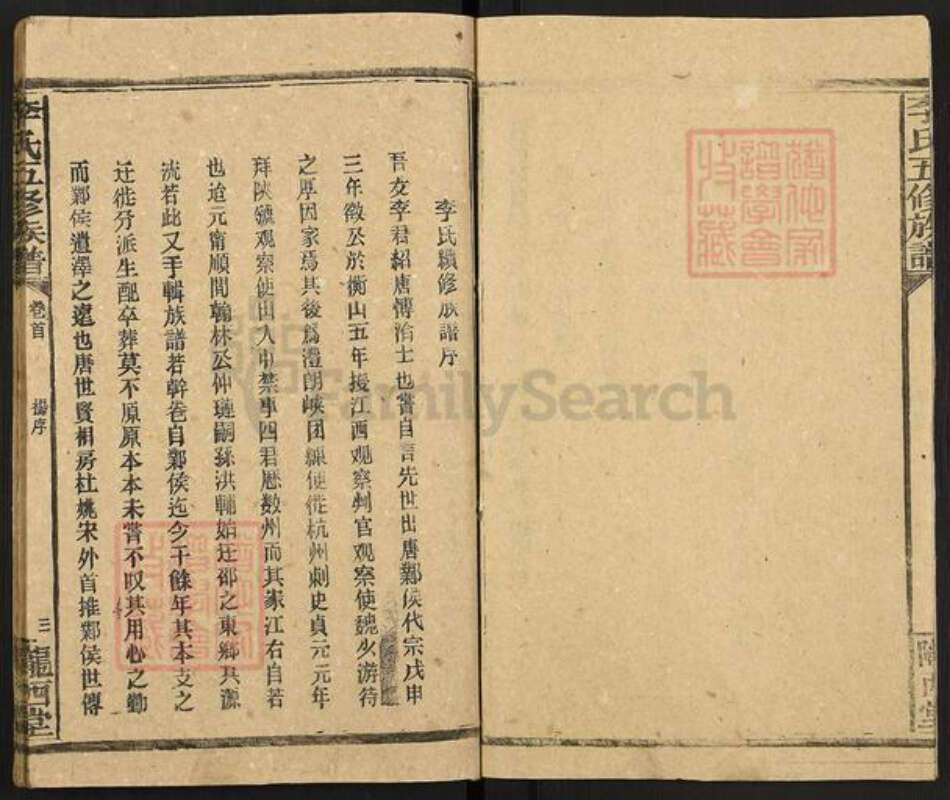 李氏五修族譜
隴西堂
李氏續修族譜序
吾友李君紹唐傳治士也嘗自言先世出唐鄴侯代宗戊申
三年徵公於衡山五年授江西觀察判官觀察使魏少游待
之厚因家焉其後爲澧朗峽団練使徙杭州刺史貞元元年
拜陝虢觀察使出入中禁事四君歷数州而其家江右自若
也迨元甯順間翰林公仲璉嗣孫洪輔始迁邵之東鄉其源
流若此又手輯族譜若幹卷自鄴侯迄今千餘年其本支之
迁徙分派生配卒葬莫不原原本本未嘗不叹其用心之勤
而鄴侯遺澤之遠也唐世賢相房杜姚宋外首推鄴侯世傳
李氏五修族譜
卷首
楊序
三
隴西堂
譜學會
收藏
FamilySearch